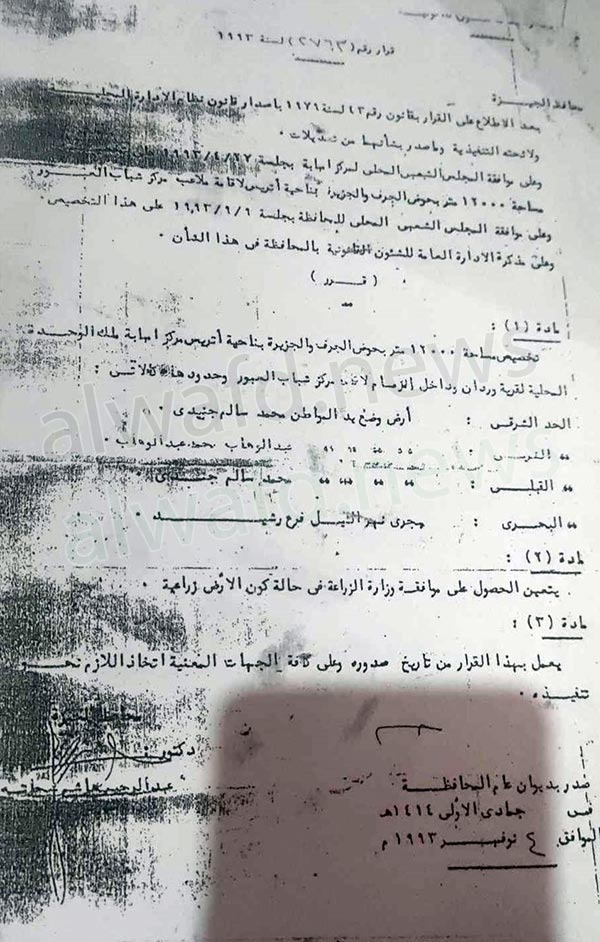 قرار رقم (٢٧٦٣) لسنة ١٩٩٣
محافظ الجيزة
بعد الاطلاع على القرار بقانون رقم ٤٣ لسنة ١٩٧٩ باصدار قانون نظام الادارة المحلية
ولائحته التنفيذية وماصدر بشأنهما من تعديلات ٠
وعلى موافقة المجلس الشعبى المحلى لمركز امبابة بجلسة ١٩٩٣/٤/٢٢
مساحة ١٢٠٠٠ متر بحوض الجرف والجزيرة بناحية أتريس لاقامة ملاعب مركز شباب العبور
وعلى موافقة المجلس الشعبى المحلى للمحافظة بجلسة ١٩٩٣/٩/٩ على هذا التخصيص ٠
وعلى مذكرة الادارة العامة للشئون القانونية بالمحافظة فى هذا الشأن ٠
( قرر )
مادة (١) :
تخصيص مساحة ١٢٠٠٠ متر بحوض الجرف والجزيرة بناحية أتريس مركز امبابة ملك الوحدة
المحلية لقرية وردان وداخل الزمام لاقامة مركز شباب العبور وحدودها كالاتى :
الحد الشرقى : أرض وضع يد المواطن محمد سالم جنيدى
" الغربى : " " " " عبدالوهاب محمد عبدالوهاب ٠
" القبلى : " " " " محمد سالم جنيدى ٠
" البحرى : مجرى نهر النيل فرع رشيد ٠
مادة (٢) :
يتعين الحصول على موافقة وزارة الزراعة فى حالة كون الأرض زراعية ٠
مادة (٣) :
يعمل بهذا القرار من تاريخ صدوره وعلى كافة الجهات المعنية اتخاذ اللازم نحو
تنفيذه ٠
محافظ الجيزة
دكتور :
عبدالرحيم شحاته
صدر بديوان عام المحافظة
فى جمادى الأولى ١٤١٤هـ
الموافق ٤ نوفمبر ١٩٩٣ م
alwafd.news
alwafd.news